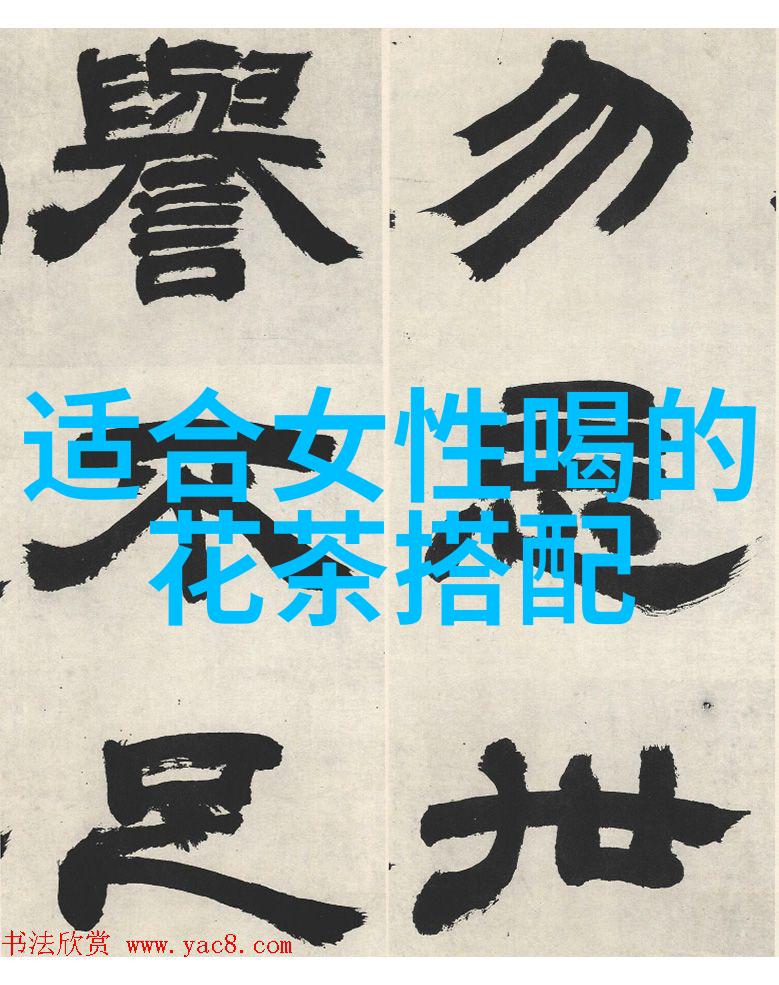 勿世
譽不足
适合女性喝的
花茶搭配
书法欣赏 www.yac8.com